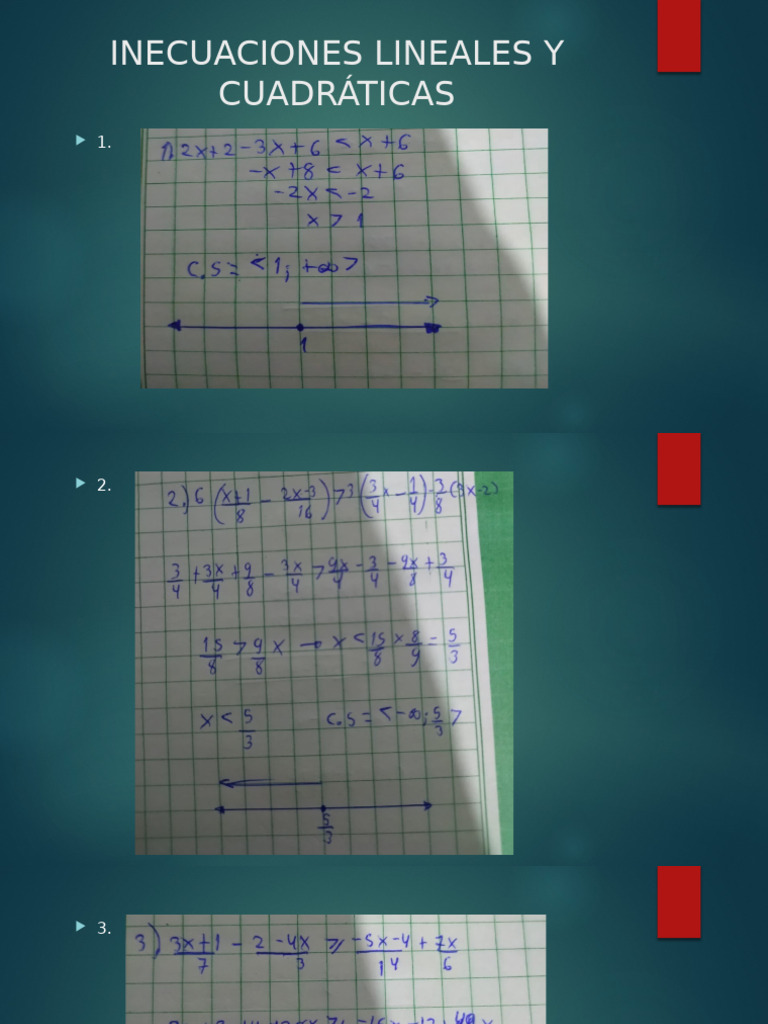 INECUACIONES LINEALES Y
CUADRÁTICAS
1.
1) 2x+2-3x+6 < x+6
-x+8 < x+6
-2x < -2
x > 1
C.S = <1; +∞>
1
2.
2.) 6 (x+1/8 - 2x-3/16) > 3 (3/4 x - 1/4) - 3/8 (3x-2)
3/4 + 3x/4 + 9/8 - 3x/4 > 9x/4 - 3/4 - 9x/8 + 3/4
15/8 > 9/8 x → x < 15/8 x 8/9 = 5/3
x < 5/3 C.S = <-∞; 5/3>
5/3
3.
3) 3x+1/7 - 2-4x/3 ≥ -5x-4/14 + 7x/6